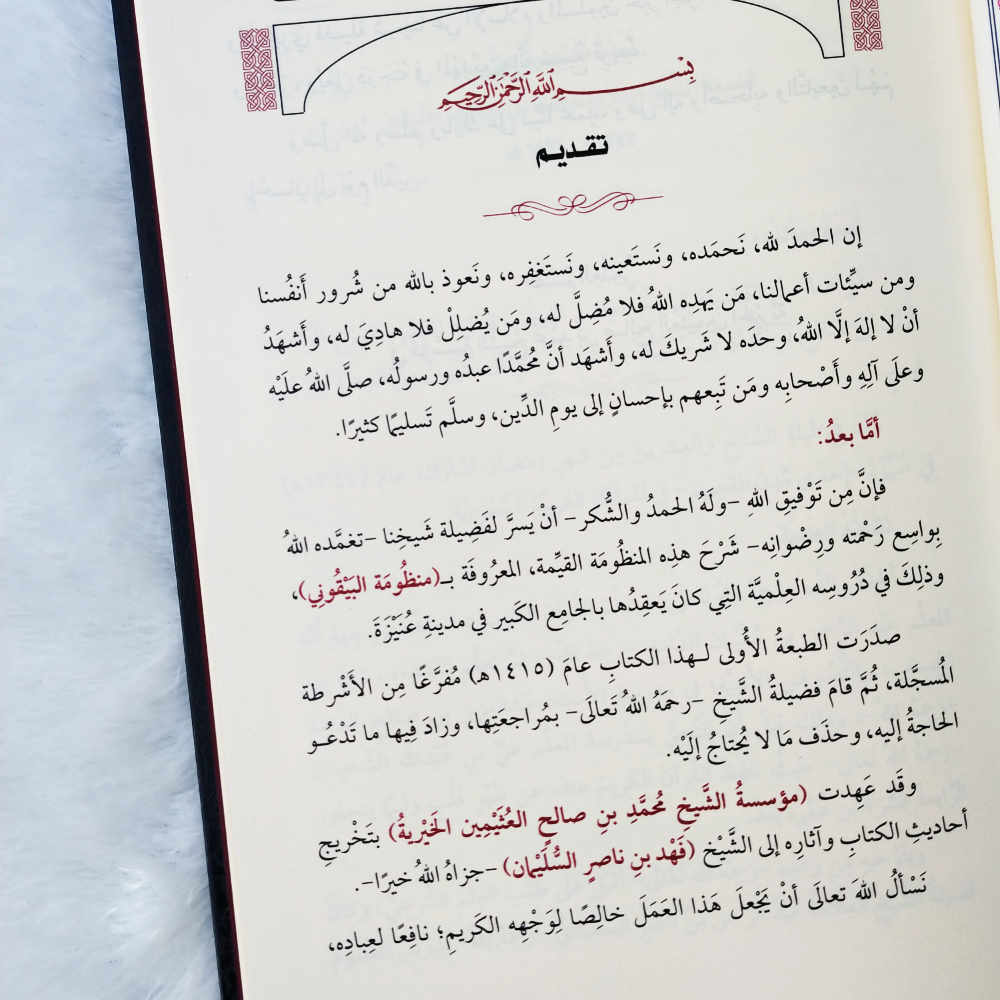 بِسْمِ اللَّهِ الرَّحْمَٰنِ الرَّحِيمِ
تقديم
إن الحمدَ لله، نَحمَده، ونَستَعينه، ونَستَغفِره، ونَعوذ بالله من شُرور أَنفُسنا
ومن سيِّئات أعمالنا، مَن يَهدِه اللهُ فلا مُضِلَّ له، ومَن يُضلِلْ فلا هادِيَ له، وأَشهَدُ
أنْ لا إلهَ إلَّا اللهُ، وحدَه لا شَريكَ له، وأَشهَد أنَّ مُحمَّدًا عبدُه ورسولُه، صلَّى اللهُ علَيْه
وعلَى آلِهِ وأَصْحابِه ومَن تَبِعهم بإحسانٍ إلى يومِ الدِّين، وسلَّم تَسليمًا كثيرًا.
أمَّا بعدُ:
فإنَّ مِن تَوْفيقِ اللهِ –ولَهُ الحمدُ والشُّكر– أنْ يَسرَّ لفَضِيلة شَيخِنا –تغمَّده اللهُ
بِواسِع رَحْمته ورِضْوانِه– شَرْحَ هذِه المنظُومَة القيِّمة، المعرُوفَة بـ(منظُومَة البَيْقُونِي)،
وذلِكَ في دُرُوسِه العِلْميَّة التِي كانَ يَعقِدُها بالجامِع الكَبير في مدينةِ عُنَيْزَةَ.
صدَرَت الطبعةُ الأُولى لـهذا الكتابِ عامَ (١٤١٥هـ) مُفرَّغًا مِن الأَشْرطة
المُسجَّلة، ثُمَّ قامَ فضيلةُ الشَّيخِ –رحمَهُ اللهُ تَعالَى– بمُراجعَتِها، وزادَ فِيها ما تَدْعُـو
الحاجةُ إليه، وحذَف مَا لا يُحتاجُ إلَيْه.
وقَد عَهِدت (مؤسسةُ الشَّيخِ مُحمَّدِ بنِ صالحٍ العُثَيْمِين الخَيْريةُ) بتَخْريجِ
أحاديثِ الكتابِ وآثارِه إلى الشَّيْخ (فَهْد بنِ ناصرٍ السُّلَيْمان) –جزاهُ اللهُ خيرًا–.
نَسْألُ اللهَ تعالَى أنْ يَجْعلَ هَذا العَمَلَ خالِصًا لِوَجْهِه الكَريمِ؛ نافِعًا لعِبادِه،